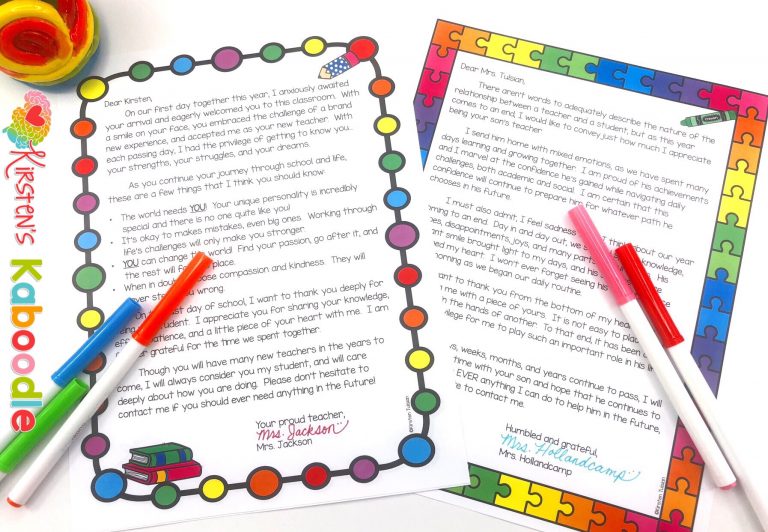 KIRSTEN'S
Kaboodle
Dear Kirsten,
On our first day together this year, I anxiously awaited
your arrival and eagerly welcomed you to this classroom. With
a smile on your face, you embraced the challenge of a brand
new experience, and accepted me as your new teacher. With
each passing day, I had the privilege of getting to know you...
your strengths, your struggles, and your dreams.
As you continue your journey through school and life,
these are a few things that I think you should know:
• The world needs YOU! Your unique personality is incredibly
special and there is no one quite like you!
• It's okay to makes mistakes, even big ones. Working through
life's challenges will only make you stronger.
• YOU can change the world! Find your passion, go after it, and
the rest will fall place.
• When in doubt compassion and kindness. They will
ever wrong.
day of school, I want to thank you deeply for
student. I appreciate you for sharing your knowledge,
patience, and a little piece of your heart with me. I am
grateful for the time we spent together.
Though you will have many new teachers in the years to
come, I will always consider you my student, and will care
deeply about how you are doing. Please don't hesitate to
contact me if you should ever need anything in the future!
Your proud teacher,
Mrs. Jackson
Mrs. Jackson
©Kirsten Tulsian
Dear Mrs. Tulsian,
There aren't words to adequately describe the nature of the
relationship between a teacher and a student, but as this year
comes to an end, I would like to convey just how much I appreciate
being your son's teacher.
I send him home with mixed emotions, as we have spent many
days learning and growing together. I am proud of his achievements
and I marvel at the confidence he's gained while navigating daily
challenges, both academic and social. I am certain that this
confidence will continue to prepare him for whatever path he
chooses in his future.
I must also admit, I feel sadness I think about our year
coming to an end. Day in and day out, we knowledge,
disappointments, joys, and many His
smile brought light to my days, and his
my heart. I won't ever forget seeing his
morning as we began our daily routine.
want to thank you from the bottom of my hear
me with a piece of yours. It is not easy to place
in the hands of another. To that end, it has been a
privilege for me to play such an important role in his li
s, weeks, months, and years continue to pass, I will
time with your son and hope that he continues to
EVER anything I can do to help him in the future,
to contact me.
Humbled and grateful,
Mrs. Hollandcamp
Mrs. Hollandcamp
©Kirsten Tulsian